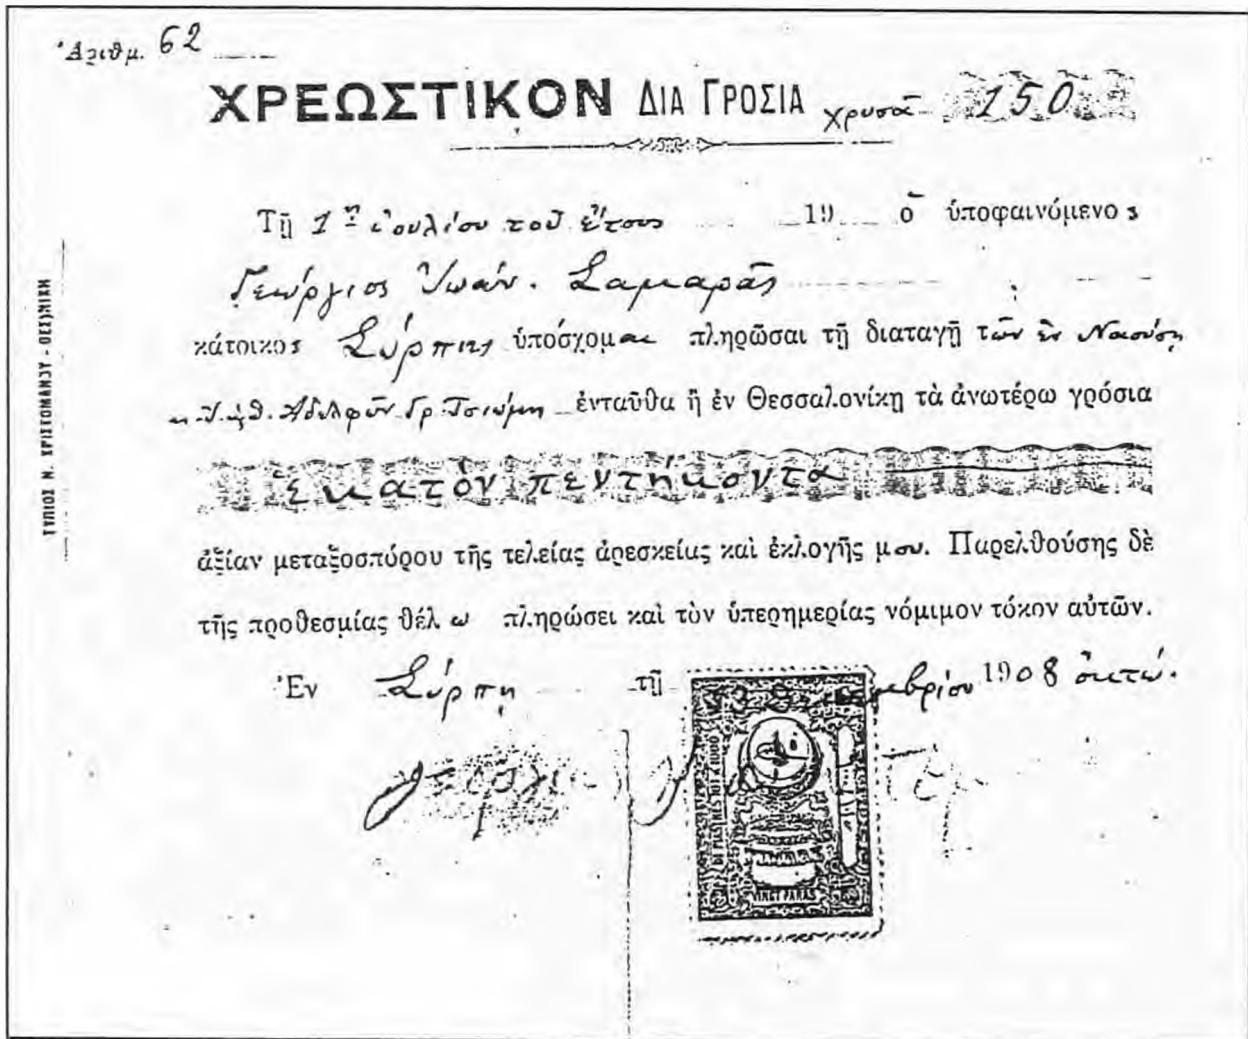 Ἀριθμ. 62
ΧΡΕΩΣΤΙΚΟΝ ΔΙΑ ΓΡΟΣΙΑ χρυσᾶ 150
Τῇ 1ῃ Ἰουλίου τοῦ ἔτους 19 ὁ ὑποφαινόμενος
Γεώργιος Ἰωάν. Σαμαρᾶς
κάτοικος Σύρπης ὑπόσχομαι πληρῶσαι τῇ διαταγῇ τῶν ἐν Ναούσῃ
Ἀδελφῶν Γρ. Τσιώμη ἐνταῦθα ἢ ἐν Θεσσαλονίκῃ τὰ ἀνωτέρω γρόσια
ἑκατόν πεντήκοντα
ἀξίαν μεταξοσπόρου τῆς τελείας ἀρεσκείας καὶ ἐκλογῆς μου. Παρελθούσης δὲ
τῆς προθεσμίας θέλω πληρώσει καὶ τὸν ὑπερημερίας νόμιμον τόκον αὐτῶν.
Ἐν Σύρπῃ τῇ 1908 ὀκτώ.
VINGT PARAS
ΤΥΠΟΙΣ Ν. ΧΡΙΣΤΟΜΑΝΟΥ - ΘΕΣ)ΝΙΚΗ